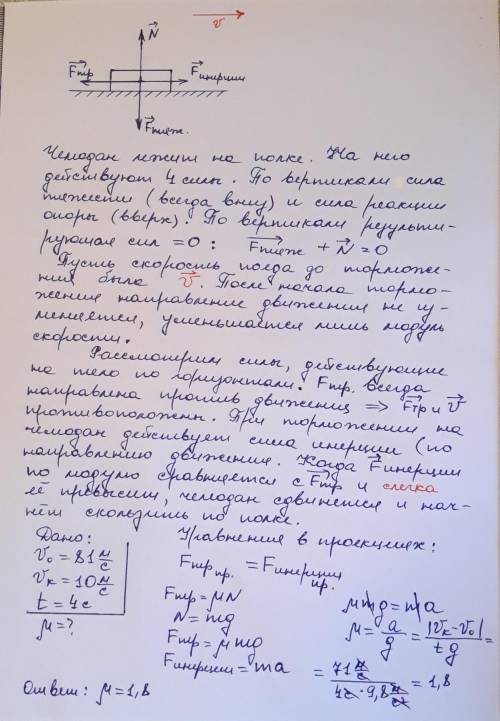 v⃗
N⃗
F⃗тр F⃗инерции
F⃗тяж.
Чемодан лежит на полке. На него
действуют 4 силы. По вертикали сила
тяжести (всегда вниз) и сила реакции
опоры (вверх). По вертикали результи-
рующая сил = 0: F⃗тяж + N⃗ = 0
Пусть скорость поезда до торможе-
ния была v⃗. После начала тормо-
жения направление движения не из-
меняется, уменьшается лишь модуль
скорости.
Рассмотрим силы, действующие
на тело по горизонтали. Fтр. всегда
направлена против движения ⇒ F⃗тр и v⃗
противоположны. При торможении на
чемодан действует сила инерции (по
направлению движения. Когда F⃗инерции
по модулю сравняется с F⃗тр и слегка
её превысит, чемодан сдвинется и нач-
нёт скользить по полке.
Дано:
v₀ = 81 м/с
vк = 10 м/с
t = 4 с
μ = ?
Уравнение в проекциях:
Fтр пр. = Fинерции пр.
Fтр = μN
N = mg
Fтр = μmg
Fинерции = ma
μmg = ma
μ = a/g = |vк - v₀|/tg =
= 71 м/с / 4с · 9,8 м/с² = 1,8
Ответ: μ = 1,8